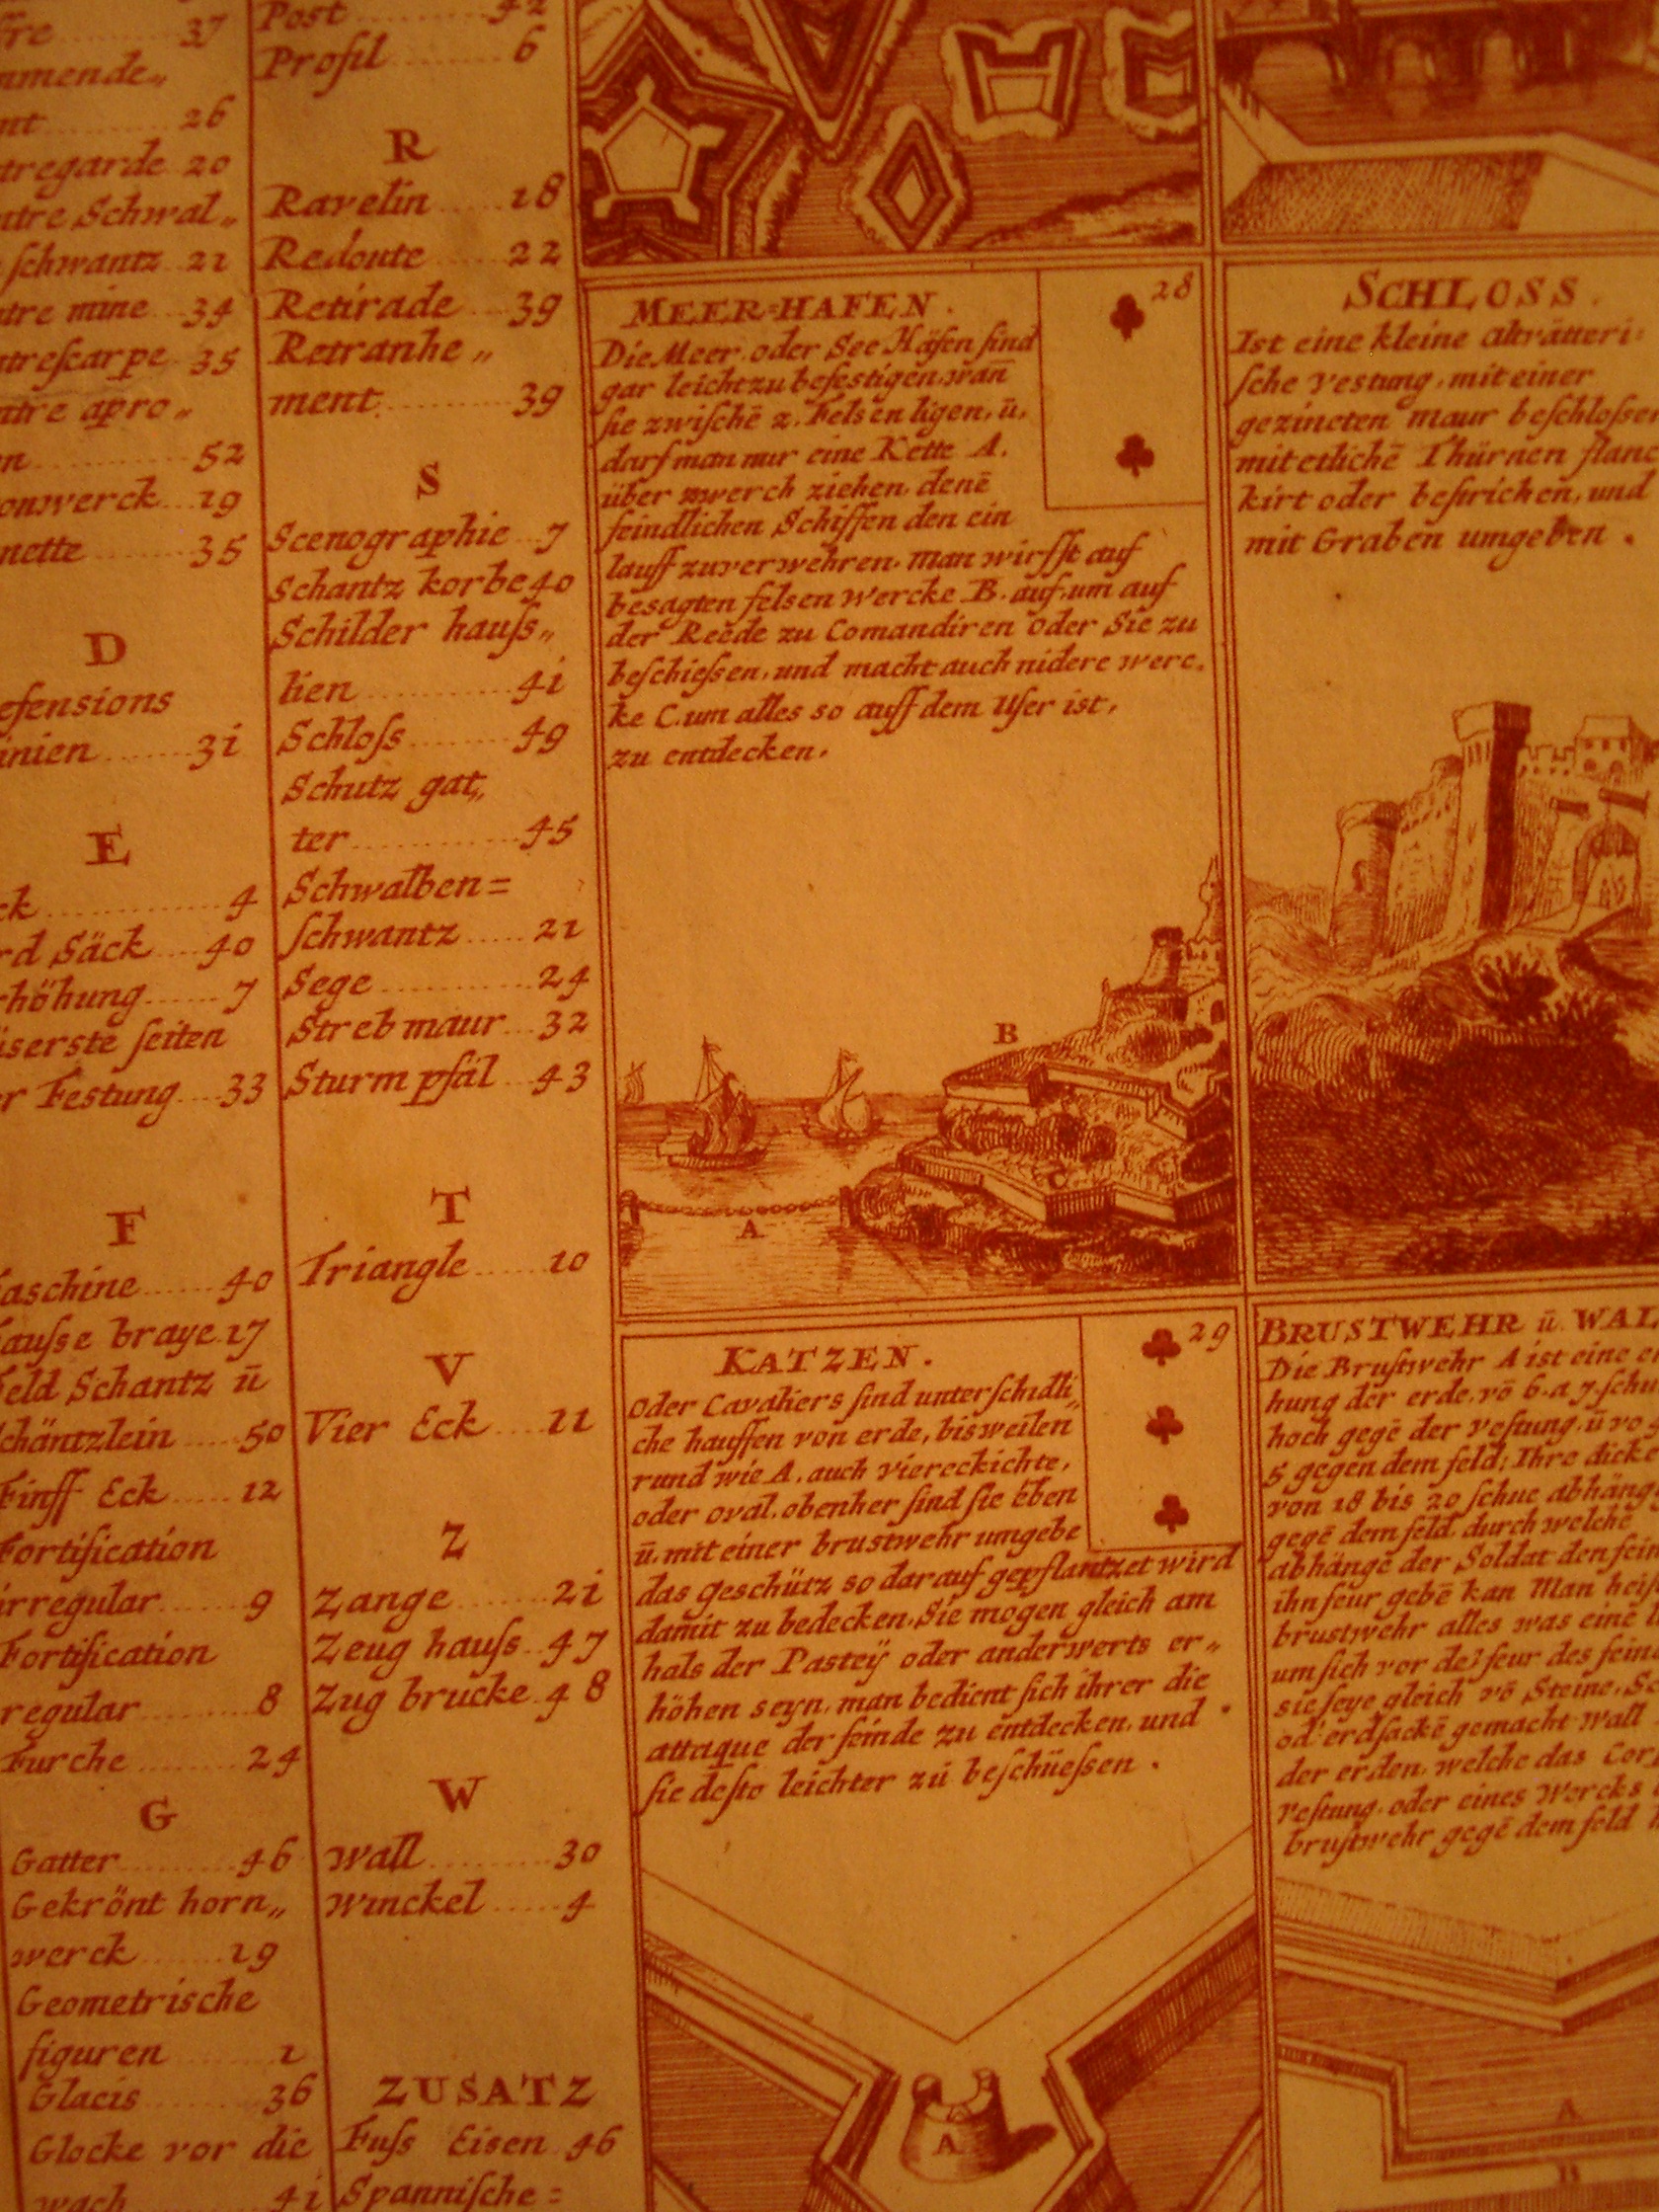 37
mmende„
26
tregarde 20
ntre Schwal„
schwantz 21
ntre mine 34
ntrescarpe 35
ntre apro„
52
onwerck 19
nette 35
D
efensions
inien 31
E
ck 4
rd Säck 40
rhöhung 7
serste seiten
r Festung 33
F
aschine 40
ausse braye 17
eld Schantz ū
chäntzlein 50
Finff Eck 12
Fortification
irregular 9
Fortification
regular 8
Furche 24
G
Gatter 46
Gekrönt horn„
werck 19
Geometrische
figuren 1
Glacis 36
Glocke vor die
wach 41
Post 42
Profil 6
R
Ravelin 18
Redoute 22
Retirade 39
Retranhe„
ment 39
S
Scenographie 7
Schantz korbe 40
Schilder hauſs„
lien 41
Schloſs 49
Schutz gat„
ter 45
Schwalben=
ſchwantz 21
Sege 24
Streb maur 32
Sturm pfäl 43
T
Triangle 10
V
Vier Eck 11
Z
Zange 21
Zeug hauſs 47
Zug brucke 48
W
Wall 30
Winckel 4
ZUSATZ
Fuſs Eisen 46
Spanniſche=
28
MEER=HAFEN.
Die Meer. oder See Häfen ſind
gar leicht zu befeſtigen, wañ
ſie zwiſchē 2. Felsen ligen, ū,
darf man nur eine Kette A.
über zwerch ziehen, denē
feindlichen Schiffen den ein
lauff zuverwehren. Man wirfft auf
besagten felsen wercke B. auf, um auf
der Reede zu Comandiren oder Sie zu
beſchieſsen, und macht auch nidere werc„
ke C. um alles so auff dem Ufer ist,
zu entdecken.
B
C
A
29
KATZEN.
Oder Cavaliers ſind unterſchidli„
che hauffen von erde, bisweilen
rund wie A. auch viereckichte,
oder oval. obenher ſind ſie eben
ū. mit einer brustwehr umgebe
das geschütz so darauf gepflantzet wird
damit zu bedecken. Sie mogen gleich am
hals der Pasteÿ oder anderwerts er„
höhen seyn, man bedient ſich ihrer die
attaque der feinde zu entdecken, und
ſie deſto leichter zu beſchüeſsen.
A
SCHLOSS.
Ist eine kleine altvätteri=
ſche Vestung, mit einer
gezincten maur beſchloſsen
mit etlichē Thürnen flanc
kirt oder beſtrichen, und
mit Graben umgeben.
BRUSTWEHR ū. WAL
Die Bruſtwehr A ist eine er
hung der erde, vō 6. a 7. ſchu
hoch gegē der veſtung, ū vo 4
5 gegen dem feld; Ihre dicke
von 18 bis 20 ſchue abhäng
gegē dem feld durch welche
abhängē der Soldat den fein
ihn feur gebē kan Man heiſ
brustwehr alles was eine
um ſich vor de feur des fein
sie ſeye gleich vō Steine, Sc
od' erdſackē gemacht. Wall
der erden, welche das Corp
veſtung, oder eines Wercks
bruſtwehr gegē dem feld
A
B